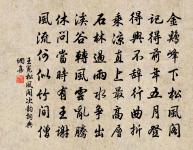 金鷄峰下松風閣
記得前年五月登
得興不辭行曲折
乘涼直上最高層
石林過雨水爭出
溪谷轉風雲亂騰
休問當時有王謝
風流何似竹間僧
王冕松風閣次韻詞典
網